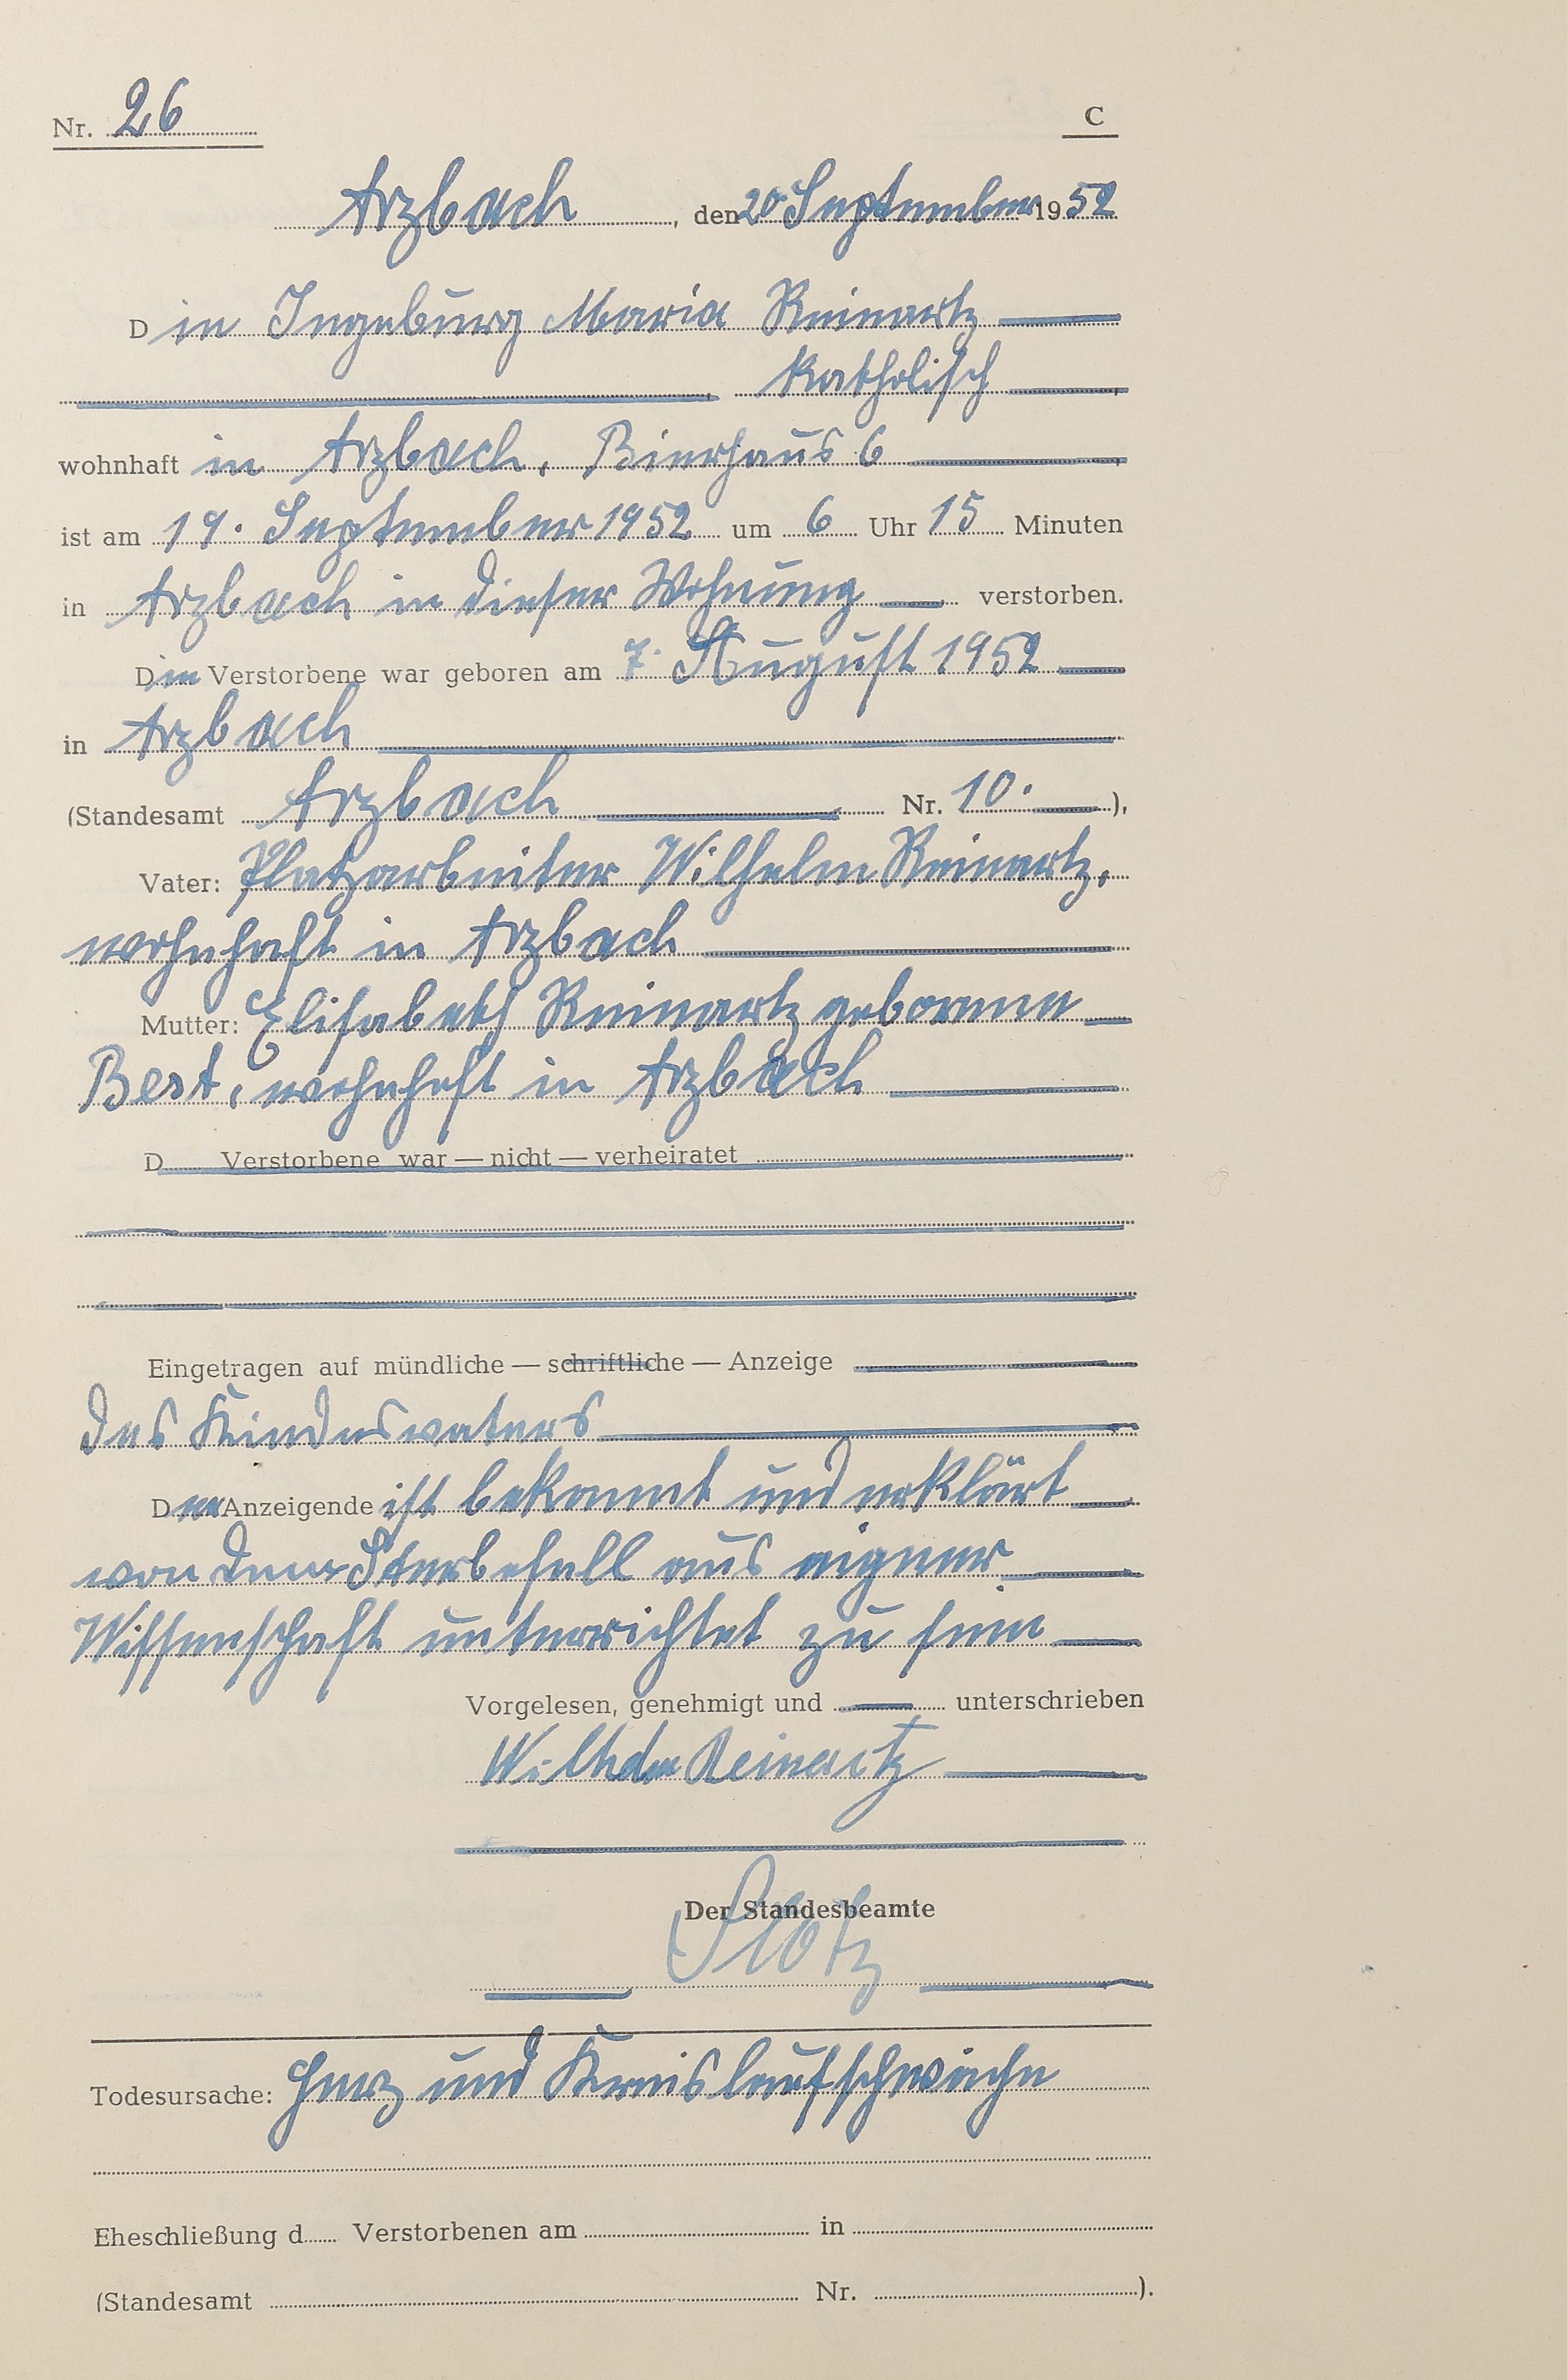 Nr. 26
C
Arzbach, den 20 September 1952
Die Ingeburg Maria Reinartz
katholisch
wohnhaft in Arzbach, Bierhaus 6
ist am 19. September 1952 um 6 Uhr 15 Minuten
in Arzbach in dieser Wohnung verstorben.
Die Verstorbene war geboren am 7. August 1952
in Arzbach
(Standesamt Arzbach Nr. 10.),
Vater: Platzarbeiter Wilhelm Reinartz,
wohnhaft in Arzbach
Mutter: Elisabeth Reinartz geborene
Best, wohnhaft in Arzbach
D Verstorbene war — nicht — verheiratet
Eingetragen auf mündliche — schriftliche — Anzeige
des Kindesvaters
Der Anzeigende ist bekannt und erklärt
von dem Sterbefall aus eigener
Wissenschaft unterrichtet zu sein
Vorgelesen, genehmigt und unterschrieben
Wilhelm Reinartz
Der Standesbeamte
Plötz
Todesursache: Herz und Kreislaufschwäche
Eheschließung d Verstorbenen am in
(Standesamt Nr. ).